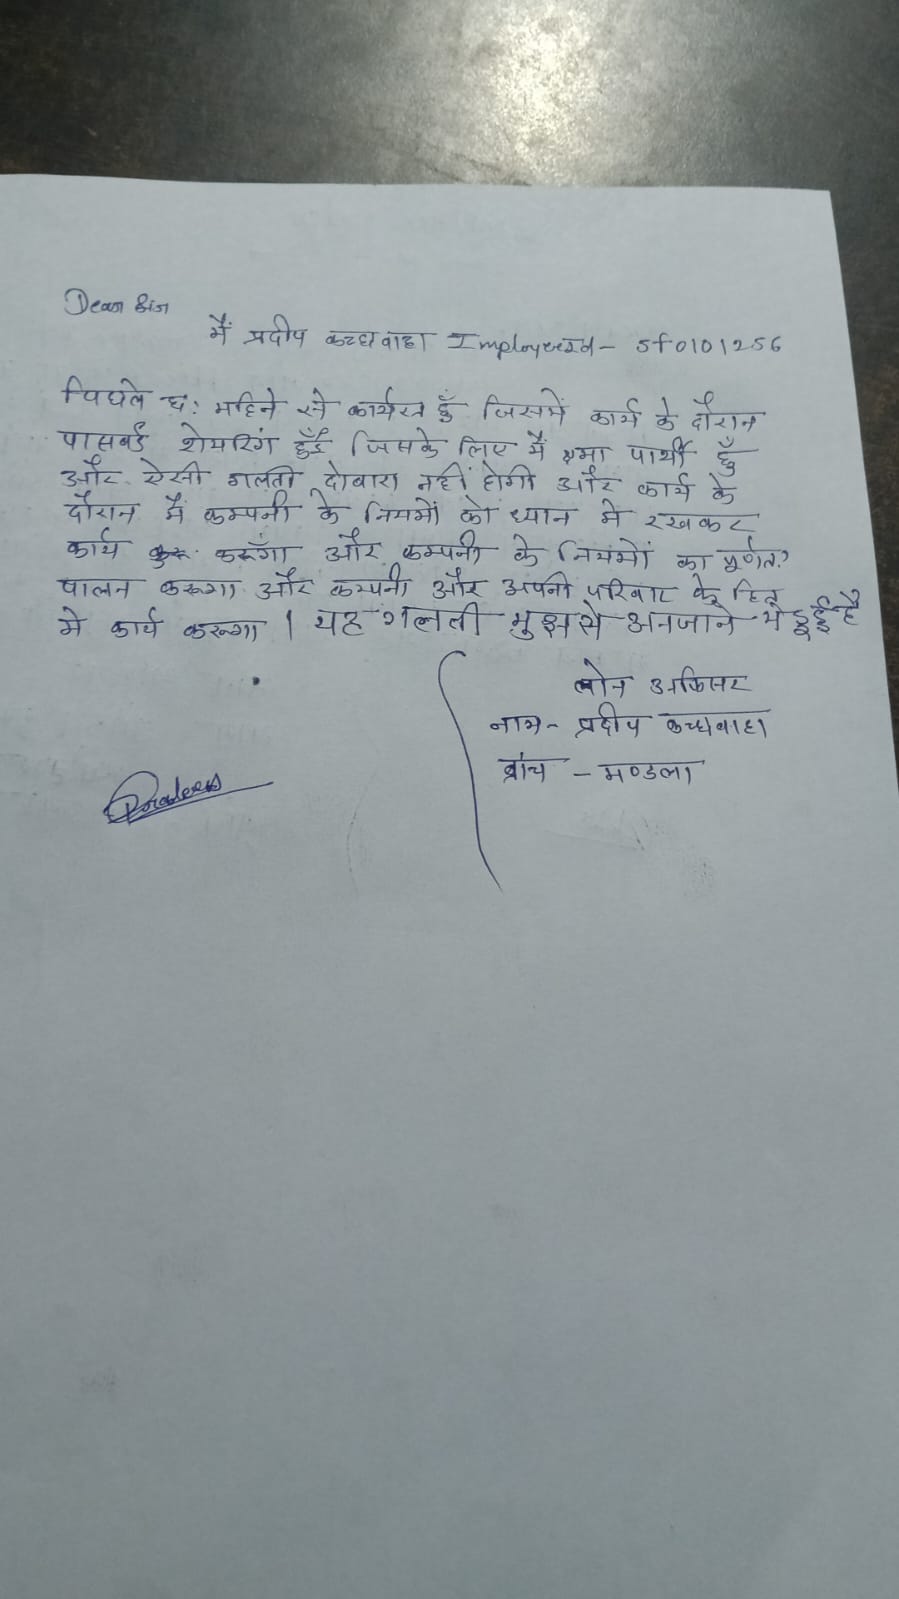 Dear Sir
मैं प्रदीप कच्छवाहा Employee Id - Sf0101256
पिछले छ: महिने से कार्यरत हुँ जिसमें कार्य के दौरान
पासवर्ड शेयरिंग हुई जिसके लिए मैं क्षमा पार्थी हुँ
और ऐसी गलती दोबारा नहीं होगी और कार्य के
दौरान मैं कम्पनी के नियमों को ध्यान मे रखकर
कार्य करूँगा और कम्पनी के नियमों का पूर्णत:
पालन करूगा और कम्पनी और अपनी परिवार के हित
मे कार्य करूगा । यह गलती मुझसे अनजाने मे हुई है
लोन अफिसर
नाम - प्रदीप कच्छवाहा
ब्रांच - मण्डला
Pradeep